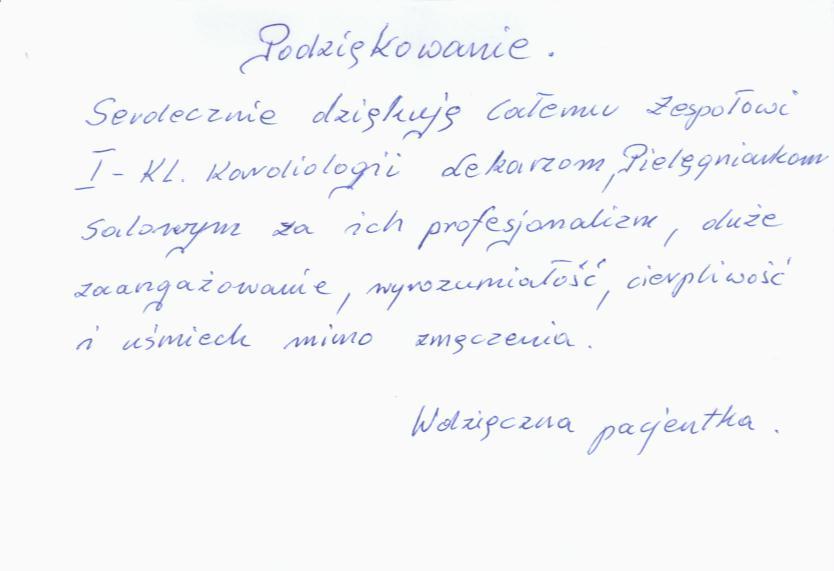 Podziękowanie.
Serdecznie dziękuję całemu Zespołowi
I - Kl. Kardiologii Lekarzom, Pielęgniarkom
Salowym za ich profesjonalizm, duże
zaangażowanie, wyrozumiałość, cierpliwość
i uśmiech mimo zmęczenia.
Wdzięczna pacjentka.